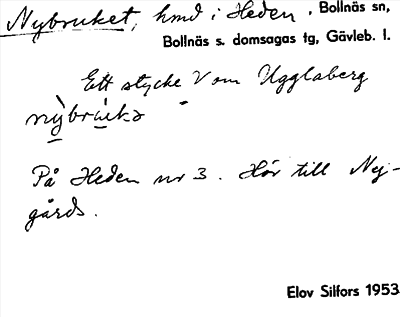 Nybruket, hmd i Heden, Bollnäs sn,
Bollnäs s. domsagas tg, Gävleb. l.
Ett stycke V om Ugglaberg
nỳbrùkə
På Heden nr 3. Hör till Nej-
gårds.
Elov Silfors 1953